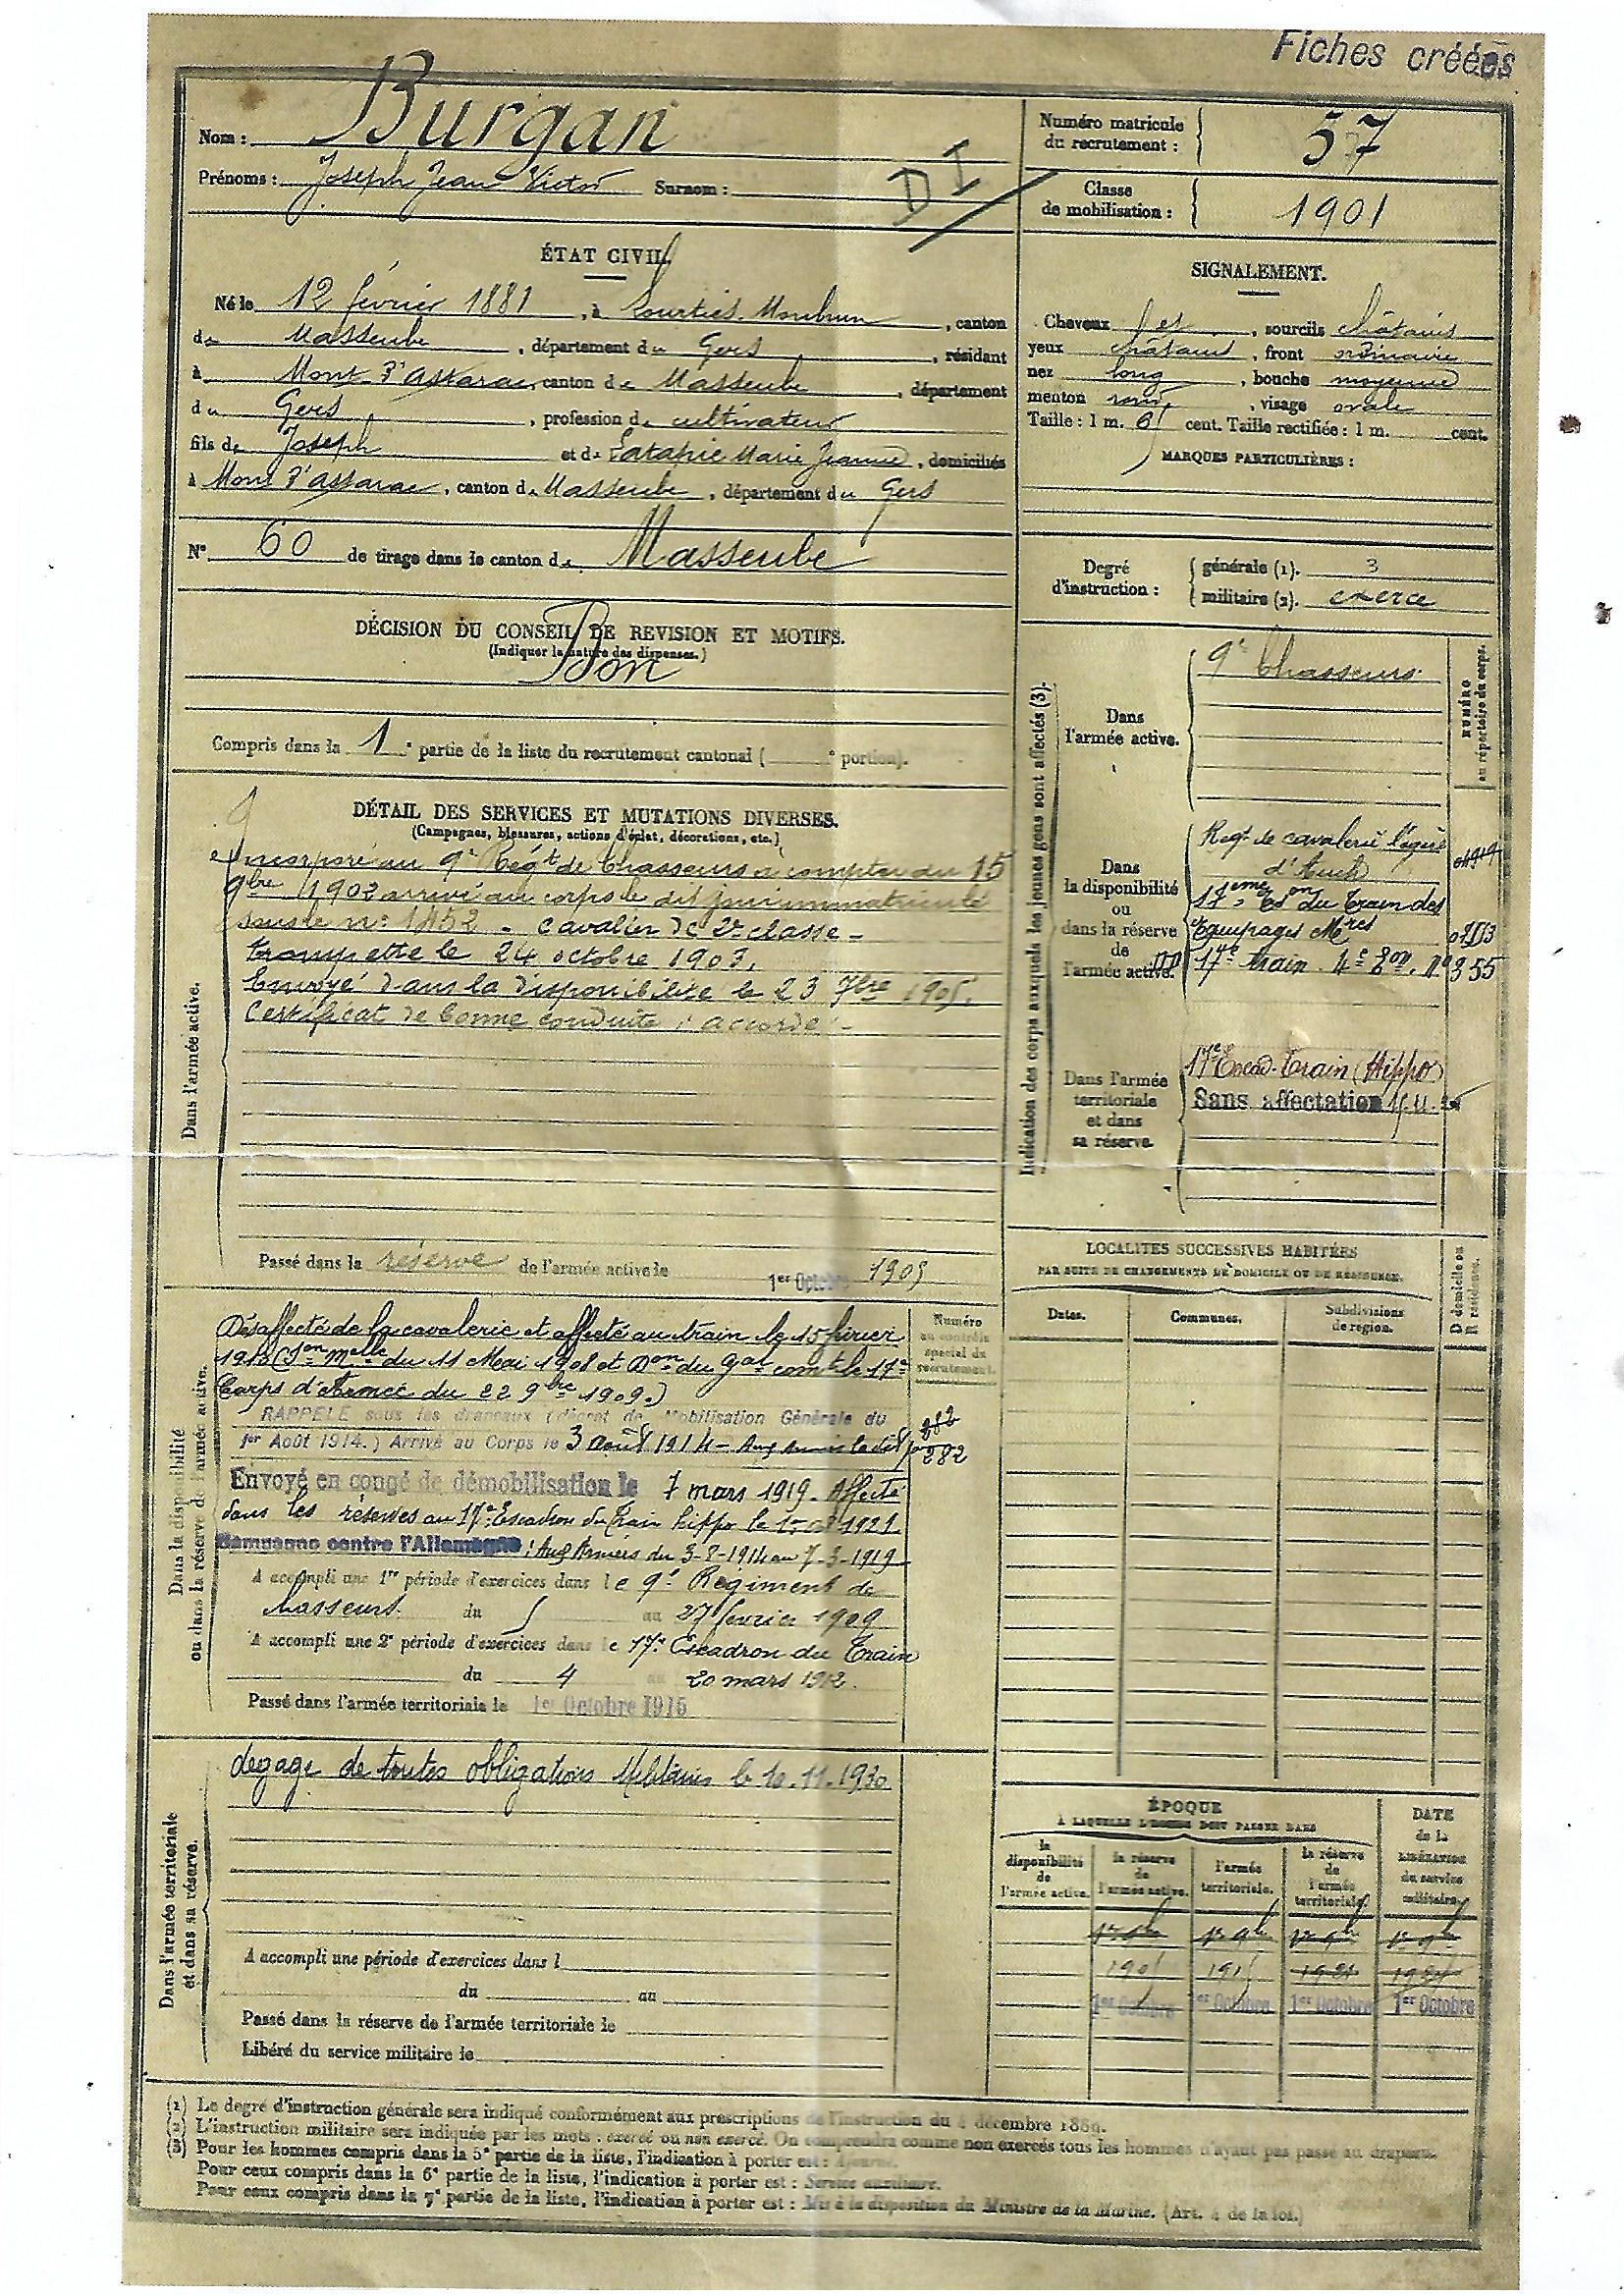 Fiches créées
Nom : Burgan
Prénoms : Joseph Jean Victor Surnom :
DI
Numéro matricule du recrutement : 57
Classe de mobilisation : 1901
ÉTAT CIVIL.
Né le 12 février 1881, à Lourties-Monbrun, canton
de Masseube, département du Gers, résidant
à Mont d'Astarac, canton de Masseube, département
du Gers, profession de cultivateur
fils de Joseph et de Latapie Marie Jeanne, domiciliés
à Mont d'Astarac, canton de Masseube, département du Gers
N° 60 de tirage dans le canton de Masseube
SIGNALEMENT.
Cheveux et, sourcils châtains
yeux châtains, front ordinaire
nez long, bouche moyenne
menton rond, visage ovale
Taille : 1 m. 61 cent. Taille rectifiée : 1 m. cent.
MARQUES PARTICULIÈRES :
Degré d'instruction : générale (1). 3
militaire (2). exercé
DÉCISION DU CONSEIL DE REVISION ET MOTIFS.
(Indiquer la nature des dispenses.)
Bon
Compris dans la 1e partie de la liste du recrutement cantonal ( e portion).
DÉTAIL DES SERVICES ET MUTATIONS DIVERSES.
(Campagnes, blessures, actions d'éclat, décorations, etc.)
Dans l'armée active.
Incorporé au 9e Régt de Chasseurs à compter du 15
9bre 1902 arrivé au corps le dit jour immatriculé
sous le n° 1452 - Cavalier de 2e classe -
trompette le 24 octobre 1903.
Envoyé dans la disponibilité le 23 7bre 1905.
Certificat de bonne conduite : accordé -
Passé dans la réserve de l'armée active le 1er Octobre 1905
Indication des corps auxquels les jeunes gens sont affectés (3).
NUMÉRO au répertoire du corps.
Dans l'armée active.
9e Chasseurs
Dans la disponibilité ou dans la réserve de l'armée active.
Regt de cavalerie légère
d'Auch
17eme Eson du Train des
Equipages Mres
17e Train 4e Eon N° 355
Dans l'armée territoriale et dans sa réserve.
17e Escad. Train (Hippo)
Sans affectation
LOCALITÉS SUCCESSIVES HABITÉES
PAR SUITE DE CHANGEMENTS DE DOMICILE OU DE RÉSIDENCE.
Dates. Communes. Subdivisions de région. D domicile ou R résidence.
Dans la disponibilité ou dans la réserve de l'armée active.
Numéro au contrôle spécial du recrutement.
Désaffecté de la cavalerie et affecté au train le 15 février
du 11 Mai 1908 et Don du Gal comt le 17e
Corps d'Armée du 22 9bre 1909.)
RAPPELÉ sous les drapeaux (décret de Mobilisation Générale du
1er Août 1914.) Arrivé au Corps le 3 août 1914 - Aux Armées le dit jour
282
282
Envoyé en congé de démobilisation le 7 mars 1919. Affecté
dans les réserves au 17e Escadron du Train hippo le 1921
Campagne contre l'Allemagne : Aux Armées du 3-8-1914 au 7-3-1919
A accompli une 1re période d'exercices dans le 9e Régiment de
Chasseurs du au 27 février 1909
A accompli une 2e période d'exercices dans le 17e Escadron du Train
du 4 au 20 mars 1912.
Passé dans l'armée territoriale le 1er Octobre 1915
Dans l'armée territoriale et dans sa réserve.
dégagé de toutes obligations Militaires le 10.11.1930
A accompli une période d'exercices dans l
du au
Passé dans la réserve de l'armée territoriale le
Libéré du service militaire le
ÉPOQUE
À LAQUELLE L'HOMME DOIT PASSER DANS
la disponibilité de l'armée active. la réserve de l'armée active. l'armée territoriale. la réserve de l'armée territoriale. DATE de la LIBÉRATION du service militaire.
1er 9bre 1er 9bre 1er 9bre 1er 9bre
1905 1915
1er Octobre 1er Octobre 1er Octobre 1er Octobre
(1) Le degré d'instruction générale sera indiqué conformément aux prescriptions de l'instruction du 4 décembre 1889.
(2) L'instruction militaire sera indiquée par les mots : exercé ou non exercé. On comprendra comme non exercés tous les hommes n'ayant pas passé au drapeau.
(3) Pour les hommes compris dans la 5e partie de la liste, l'indication à porter est : Ajourné.
Pour ceux compris dans la 6e partie de la liste, l'indication à porter est : Service auxiliaire.
Pour ceux compris dans la 7e partie de la liste, l'indication à porter est : Mis à la disposition du Ministre de la Marine. (Art. 4 de la loi.)